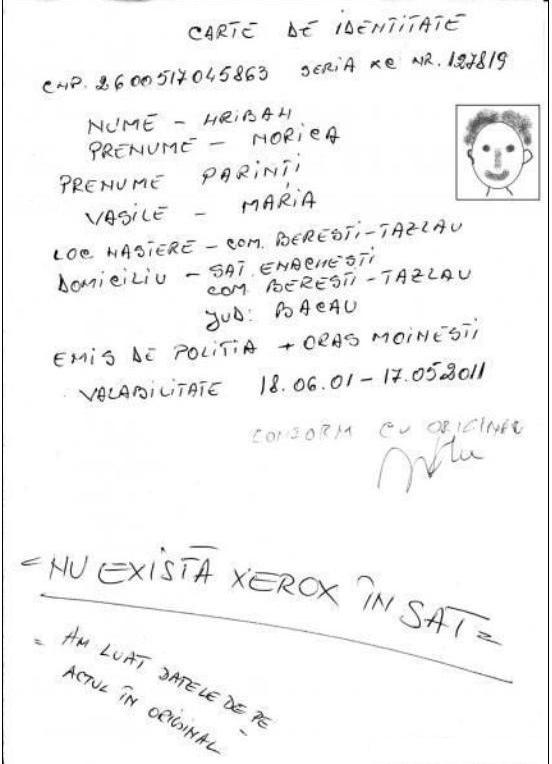 CARTE DE IDENTITATE
CNP. 2600517045863 SERIA XC NR. 127819
NUME - HRIBAN
PRENUME - NORICA
PRENUME PARINTI
VASILE - MARIA
LOC NASTERE - COM. BERESTI-TAZLAU
DOMICILIU - SAT ENACHESTI
COM. BERESTI-TAZLAU
JUD: BACAU
EMIS DE POLITIA + ORAS MOINESTI
VALABILITATE 18.06.01 - 17.05.2011
CONFORM CU ORIGINAL
= NU EXISTĂ XEROX ÎN SAT =
= AM LUAT DATELE DE PE
ACTUL ÎN ORIGINAL =